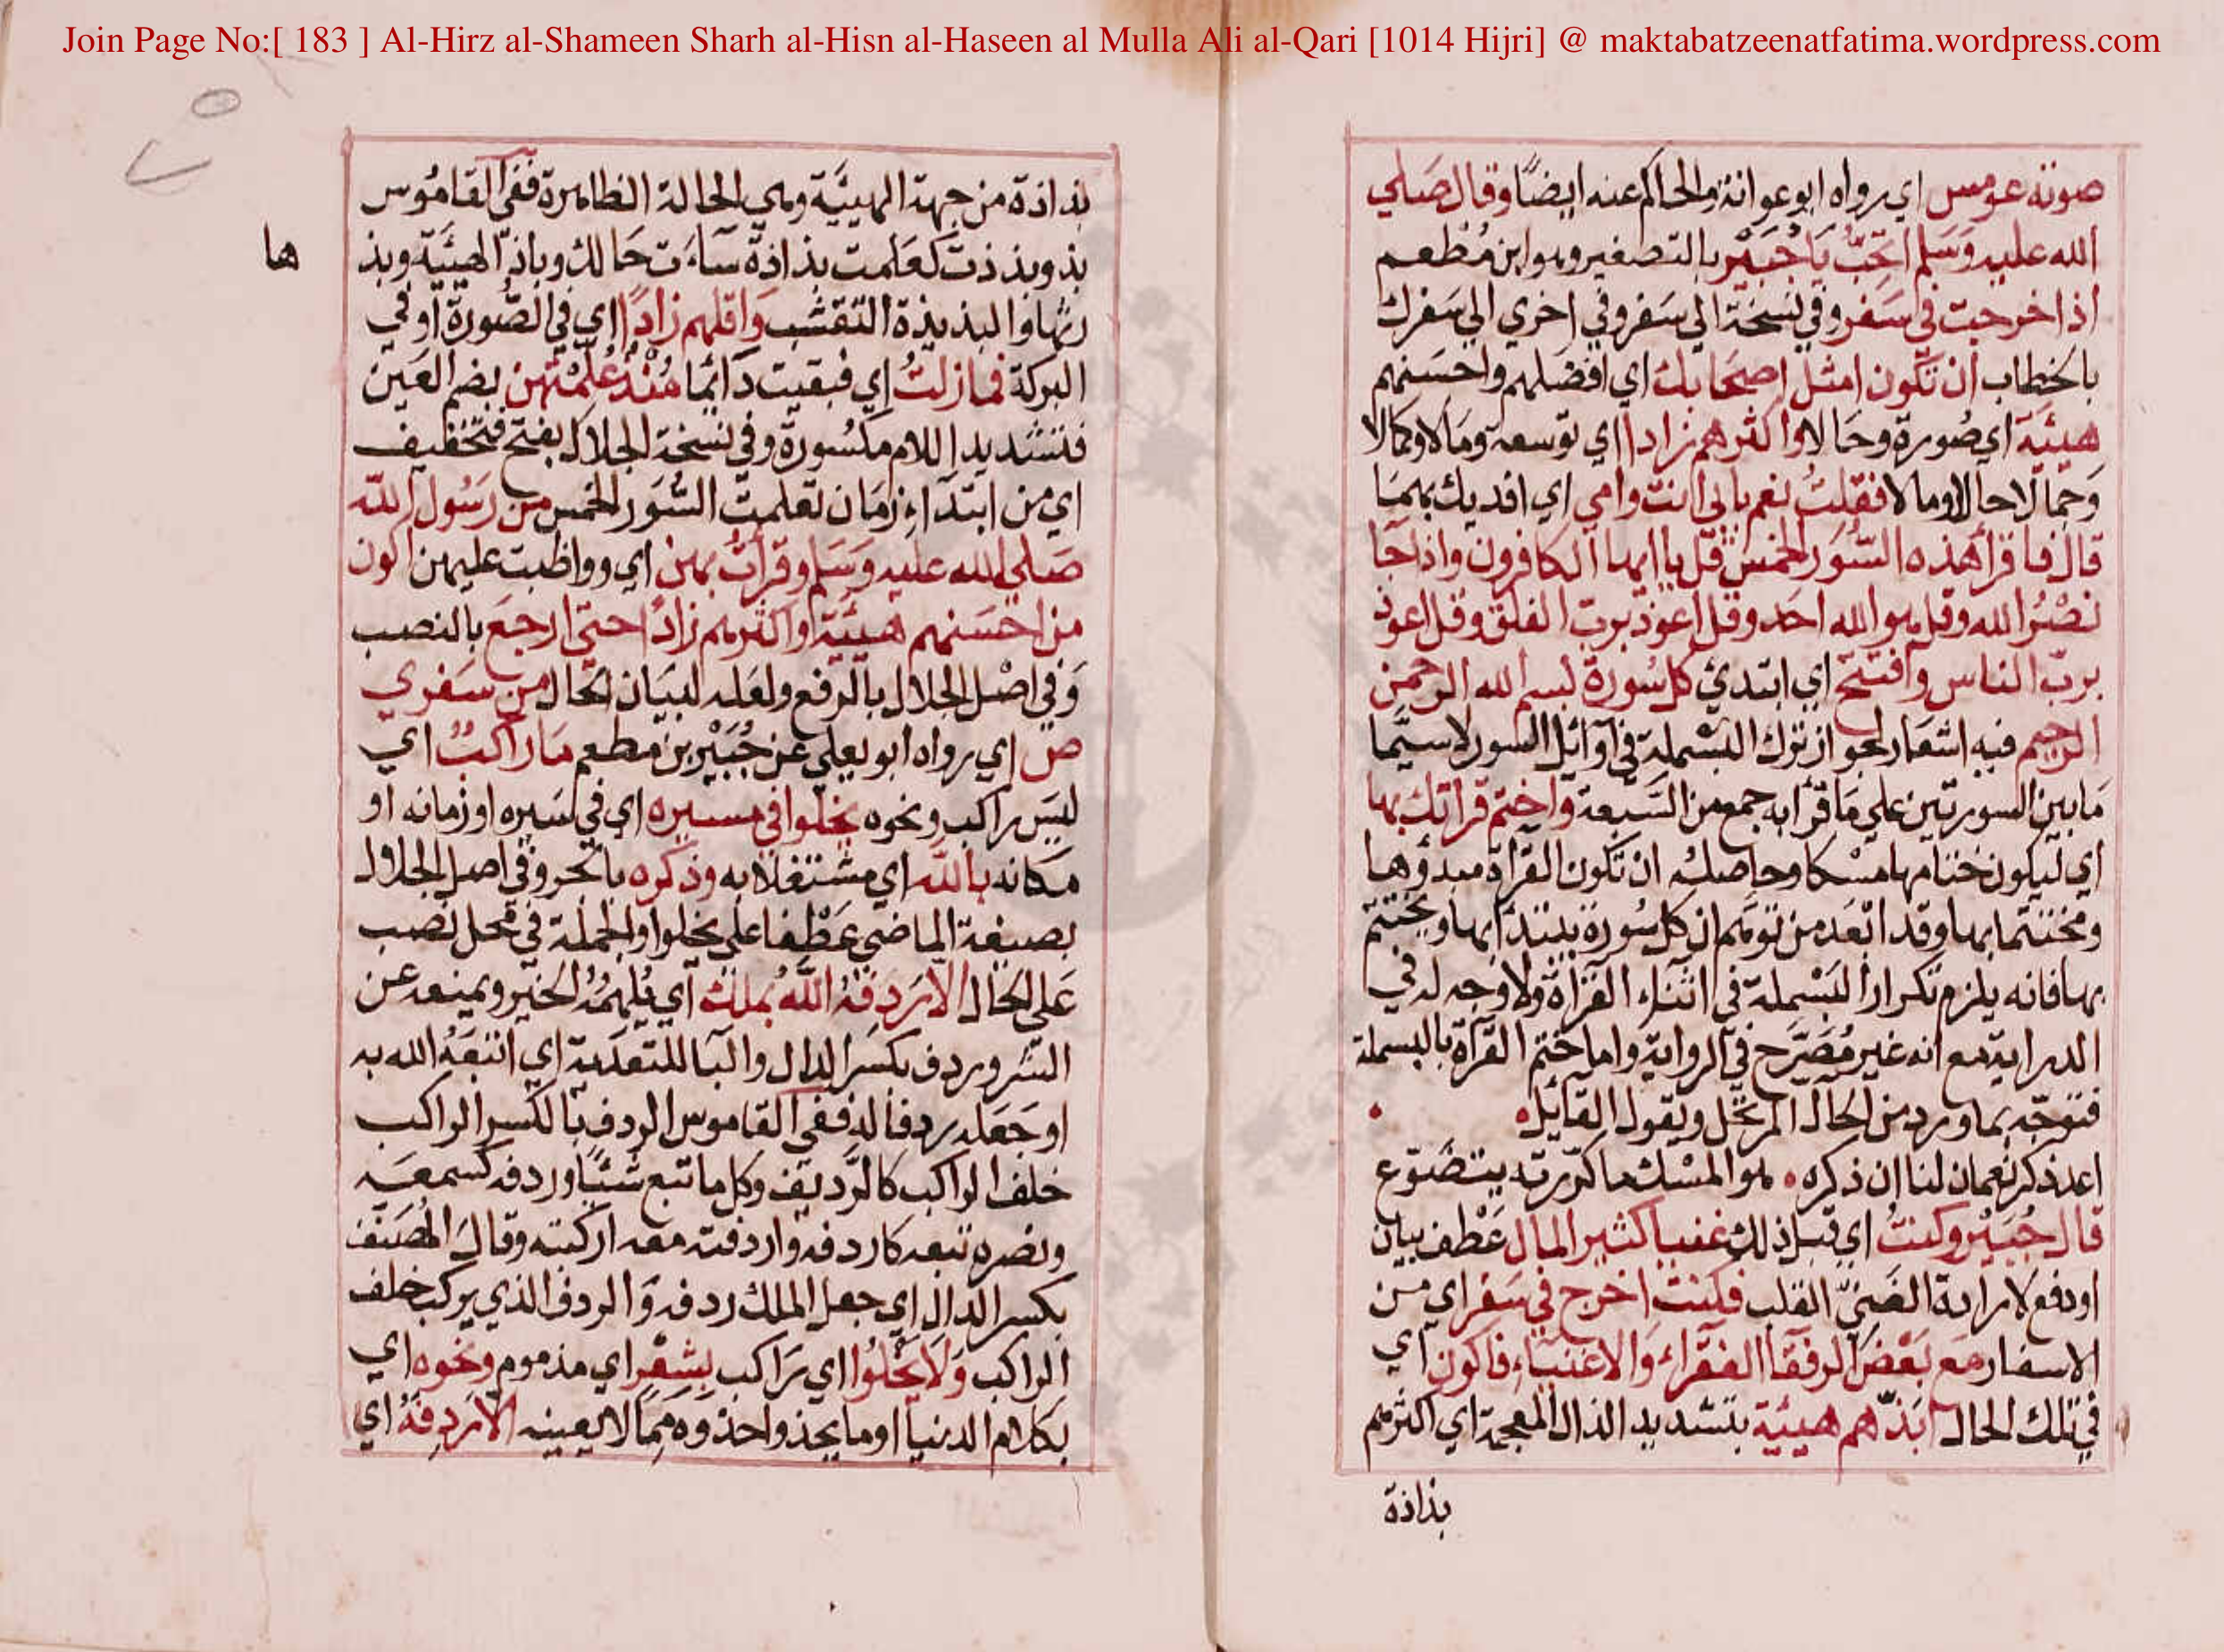 Join Page No:[ 183 ] Al-Hirz al-Shameen Sharh al-Hisn al-Haseen al Mulla Ali al-Qari [1014 Hijri] @ maktabatzeenatfatima.wordpress.com
صوته عو مس اي رواه ابو عوانة والحاكم عنه ايضًا وقال صَلي
الله عليه وَسَلم اتحِبّ يَا جُبَيْر بالتصغير وهو ابن مُطعم
اذا خرجت في سَفر وفي نسخة الي سَفر وفي اخري الي سَفرك
بالخطاب ان تكون امثل اصحَابك اي افضلهم واحسَنهم
هيئَة اي صُورة وحَالا واكثرهم زادا اي توسعة ومَالا وكمالا
وَجمالا حالا ومالا فقلتُ نعم بابي انت وامي اي افديك بهمَا
قال فاقرأ هذه السُّوَر الخمس قل يا ايها الكافرون واذا جَا
نصْرُ الله وقل هو الله احَد وقل اعوذ بربّ الفلق وقل اعوذ
بربّ الناس وافتتح اي ابتدئ كل سُورة ببسم الله الرحمن
الرحيم فيه اشعَار لجواز ترك البسْملة في اوائل السور لاسيَّما
مَا بين السورتين علي مَا قرأ به جمع من السَّبعة واختم قراتك بها
اي ليكون ختامها مسْكا وحاصله ان تكون القرأة مبدؤها
ومختتما بها وقد ابْعَد من توهم ان كل سُورة يبتدأ بها ويختتم
بها فانه يلزم تكرار البَسْملة في اثناء القرأة ولا وجه له في
الدراية مع انه غير مُصَرَّح في الرواية واما ختم القرأة بالبسملة
فتوجّه بما ورد من الحال المرتحل ويقول القائل
اعد ذكر نعمان لنا ان ذكره هو المسْك ما كرّرته يتضَوّع
قال جُبَيْر وكنتُ اي قبل ذلك غنيا كثير المال عَطف بيان
او دفع لارادة الغَنيّ القلب فكنت اخرج في سَفر اي من
الاسفار مع بَعْض الرفقا الفقراء وَالاغنيَاء فاكون اي
في تلك الحال ابَذّهم هيئَة بتشديد الذال المعجمة اي اكثرهم
بذاذة
بذاذة من جهة الهيئَة وهي الحالة الظاهرة ففي القامُوس
بذ وبذذت كعَلمت بذاذة سَآءَت حَالك وباذّ الهيئَة وبذ
ها
رثها والبذيذة التقشب وَاقلهم زادًا اي في الصُّورة او في
البركة فمازلتُ اي فبقيت دَائمًا مُنْذُ عُلِّمْتهن بضم العَين
فتشديد اللام مكسُورة وفي نسخة الجلال بفتح فتخفيف
اي من ابتدَاء زمَان تعلمت السُّوَر الخمس من رَسُول اللّه
صَلي الله عليه وَسَلم وقرأتُ بهن اي وواظبت عليهن اكون
من احْسَنهم هيئَة واكثرهم زادًا حتي ارجعَ بالنصب
وَفي اصْل الجلال بالرفع ولعَله لبيَان الحَال من سَفري
ص اي رواه ابو يعلي عن جُبَيْر بن مطعم مَا راكبٌ اي
ليسَ راكب ونحوه يخلوا في مسيره اي في سَيره او زمانه او
مكانه باللّه اي مشتغلا به وذكره بالجر وفي اصل الجلال
بصيغة الماضي عَطْفا علي يخلوا والجملة في محل نصب
عَلي الحَال الا رَدِفهُ اللّهُ بملك اي يُلهِمُهُ الخير ويمنعه عن
الشر وردف بكسَر الدال والبا للتعدَية اي اتبعَهُ الله به
او جَعَله ردفا له ففي القاموس الردف بالكسر الراكب
خلف الراكب كالرَّديف وكل ما تبع شيئًا وردفه كسمعَه
ونصره تبعه كاردفه واردفته معه اركبته وقال المُصَنف
بكسر الدال اي جعل الملك ردفه وَالردف الذي يركب خلف
الراكب وَلا يخْلُوا اي رَاكب بشعْر اي مذموم ونحوه اي
بكلام الدنيا او ما يحذوا حذوه ممَّا لا يعينه الا رَدِفهُ اي